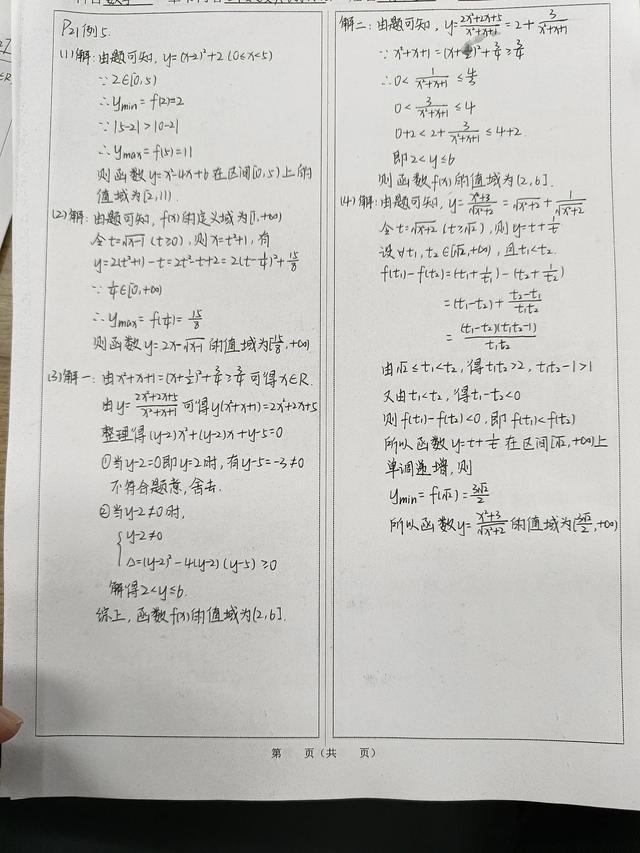 P21例5.
(1)解:由题可知, y=(x-2)²+2 (0≤x<5)
∵2∈[0,5)
∴ymin=f(2)=2
∵|5-2|>|0-2|
∴ymax=f(5)=11
则函数y=x²-4x+6在区间[0,5)上的
值域为[2,11).
(2)解:由题可知, f(x)的定义域为[1,+∞)
令t=√x-1 (t≥0), 则x=t²+1, 有
y=2(t²+1)-t=2t²-t+2=2(t-1/4)²+15/8
∵1/4∈[0,+∞)
∴ymax=f(1/4)=15/8
则函数y=2x-√x-1的值域为[15/8,+∞)
(3)解一:由x²+x+1=(x+1/2)²+3/4≥3/4可得x∈R.
由y=2x²+2x+5/x²+x+1可得y(x²+x+1)=2x²+2x+5
整理得(y-2)x²+(y-2)x+y-5=0
①当y-2=0即y=2时,有y-5=-3≠0
不符合题意,舍去.
②当y-2≠0时,
{y-2≠0
Δ=(y-2)²-4(y-2)(y-5)≥0
解得2<y≤6.
综上,函数f(x)的值域为(2,6].
解二:由题可知, y=2x²+2x+5/x²+x+1=2+3/x²+x+1
∵x²+x+1=(x+1/2)²+3/4≥3/4
∴0<1/x²+x+1≤4/3
0<3/x²+x+1≤4
0+2<2+3/x²+x+1≤4+2
即2<y≤6
则函数f(x)的值域为(2,6].
(4)解:由题可知, y=x²+3/√x²+2=√x²+2+1/√x²+2
令t=√x²+2 (t≥√2), 则y=t+1/t
设∀t₁,t₂∈[√2,+∞), 且t₁<t₂.
f(t₁)-f(t₂)=(t₁+1/t₁)-(t₂+1/t₂)
=(t₁-t₂)+t₂-t₁/t₁t₂
=(t₁-t₂)(t₁t₂-1)/t₁t₂
由√2≤t₁<t₂, 得t₁t₂>2, t₁t₂-1>1
又由t₁<t₂, 得t₁-t₂<0
则f(t₁)-f(t₂)<0, 即f(t₁)<f(t₂)
所以函数y=t+1/t在区间[√2,+∞)上
单调递增,则
ymin=f(√2)=3√2/2
所以函数y=x²+3/√x²+2的值域为[3√2/2,+∞)
第 页(共 页)